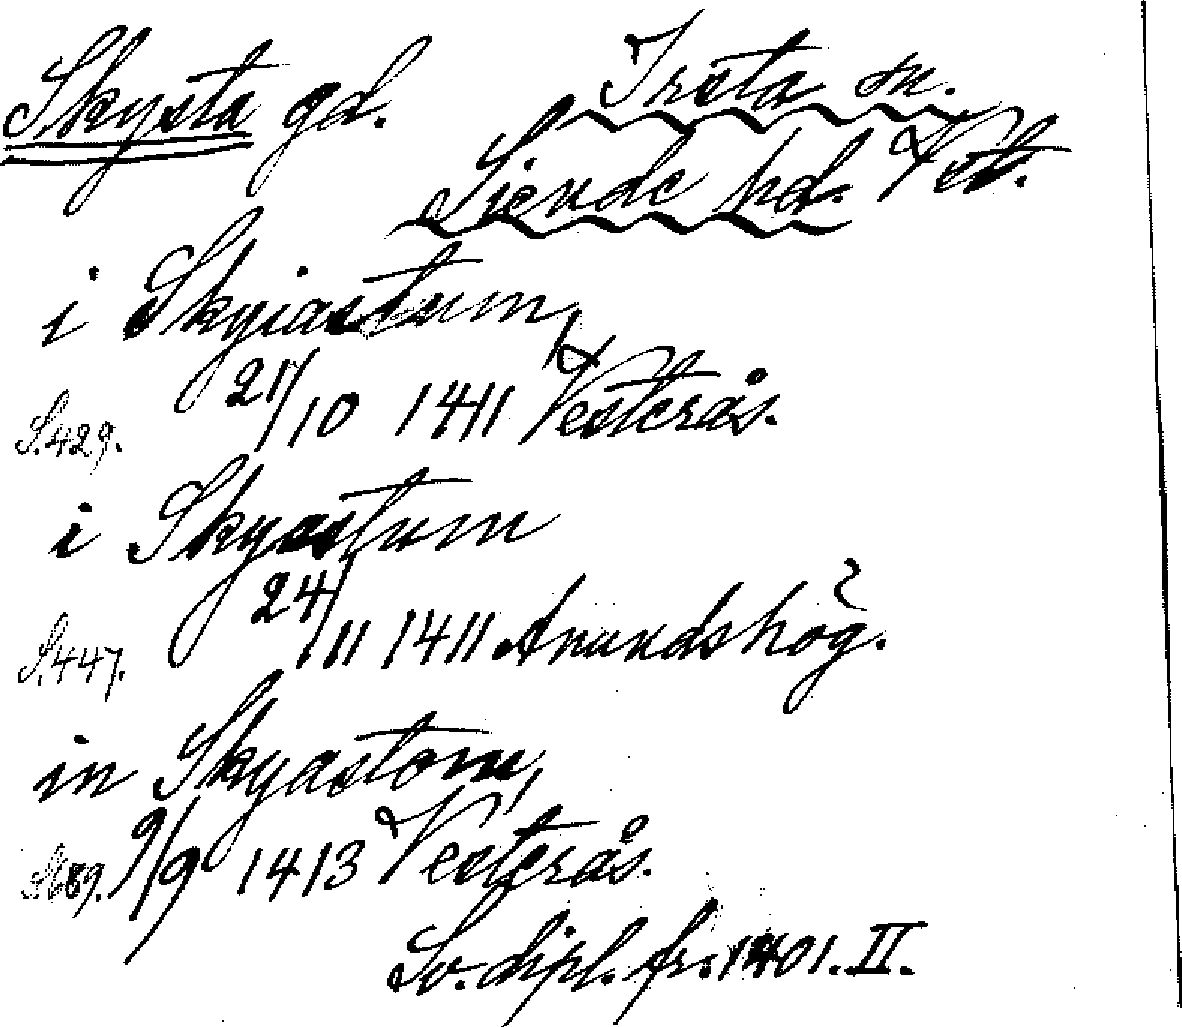 Skysta gd. Irsta sn.
Siende hd. Vstm.
i Skyiastum,
S. 429. 21/10 1411 Vesterås.
i Skyastum
S. 447. 24/11 1411 Anundshög.
in Skyastom,
9/9 1413 Vesterås.
Sv. dipl. fr. 1401. II.